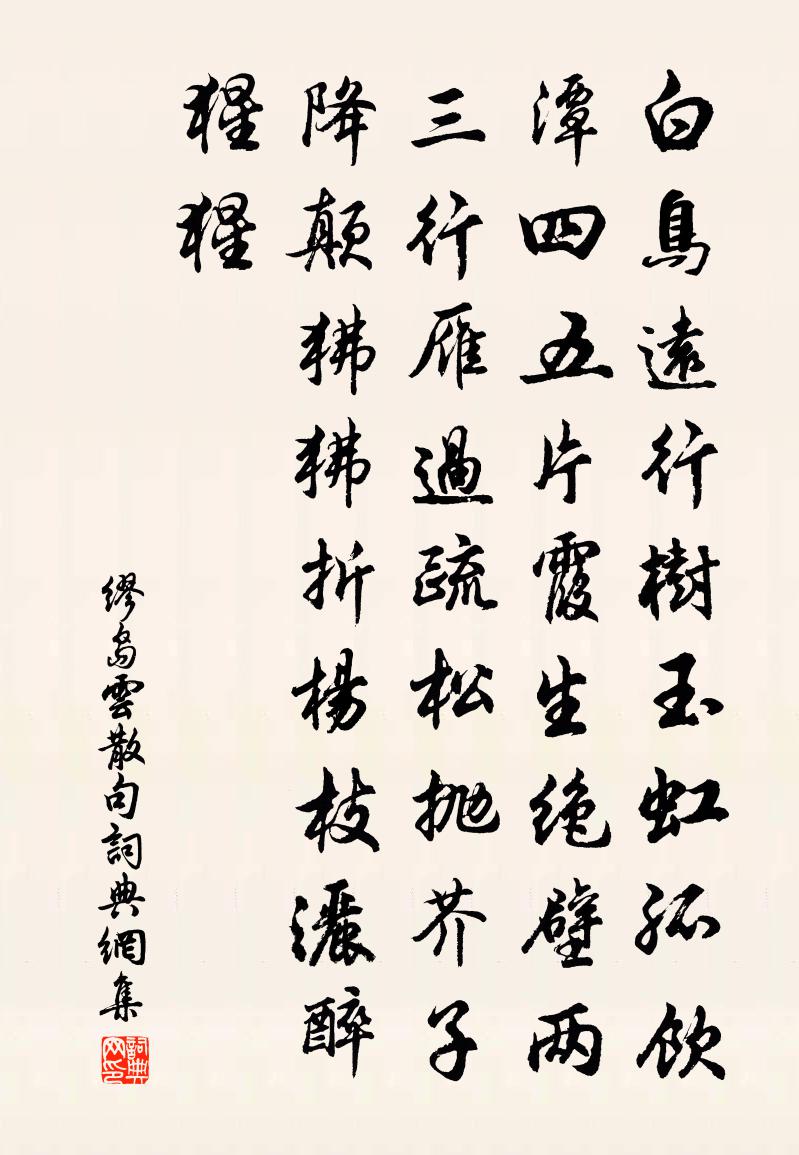 白鳥遠行樹玉虹孤飲
潭四五片霞生绝壁两
三行雁過疏松抛芥子
降颠狒狒折楊枝灑醉
猩猩
繆島雲散句詞典網集
詞典网印